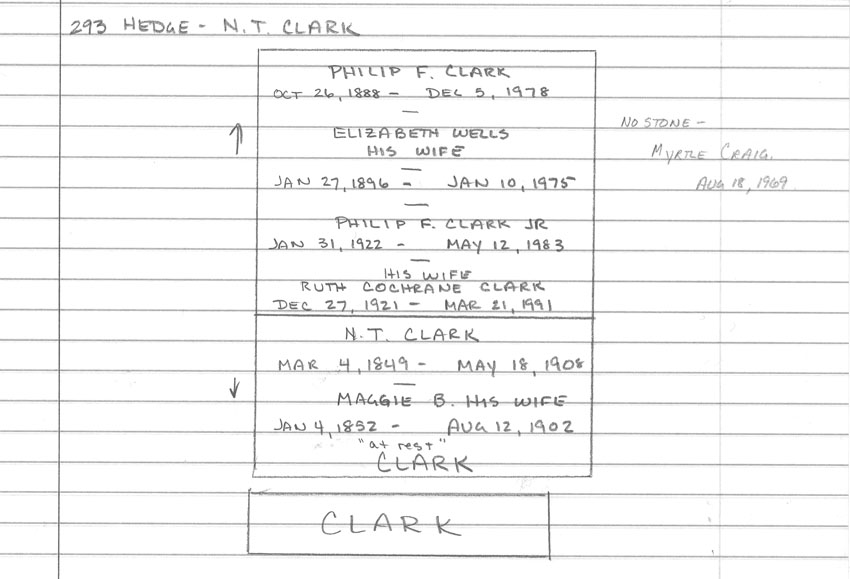 293 HEDGE - N.T. CLARK
PHILIP F. CLARK
OCT 26, 1888 - DEC 5, 1978
—
ELIZABETH WELLS
HIS WIFE
—
JAN 27, 1896 - JAN 10, 1975
—
PHILIP F. CLARK JR
JAN 31, 1922 - MAY 12, 1983
—
HIS WIFE
RUTH COCHRANE CLARK
DEC 27, 1921 - MAR 21, 1991
N.T. CLARK
MAR 4, 1849 - MAY 18, 1908
—
MAGGIE B. HIS WIFE
JAN 4, 1852 - AUG 12, 1902
"at rest"
CLARK
CLARK
NO STONE -
MYRTLE CRAIG.
AUG 18, 1969